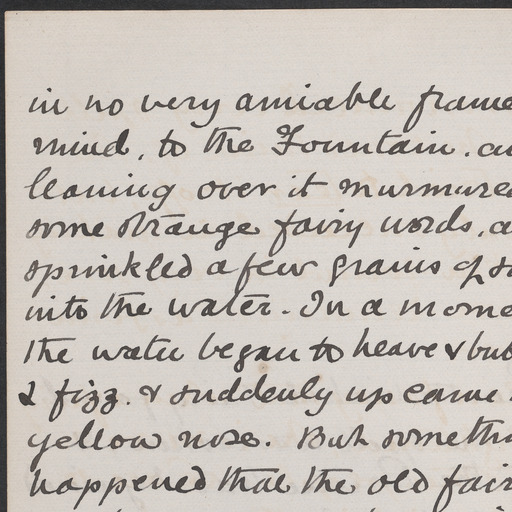 in no very amiable frame
mind, to the Fountain. an
leaning over it murmured
some strange fairy words, a
sprinkled a few grains of
into the water. In a mome
the water began to heave & bub
& fizz. & suddenly up came
yellow nose. But somethi
happened that the old fair